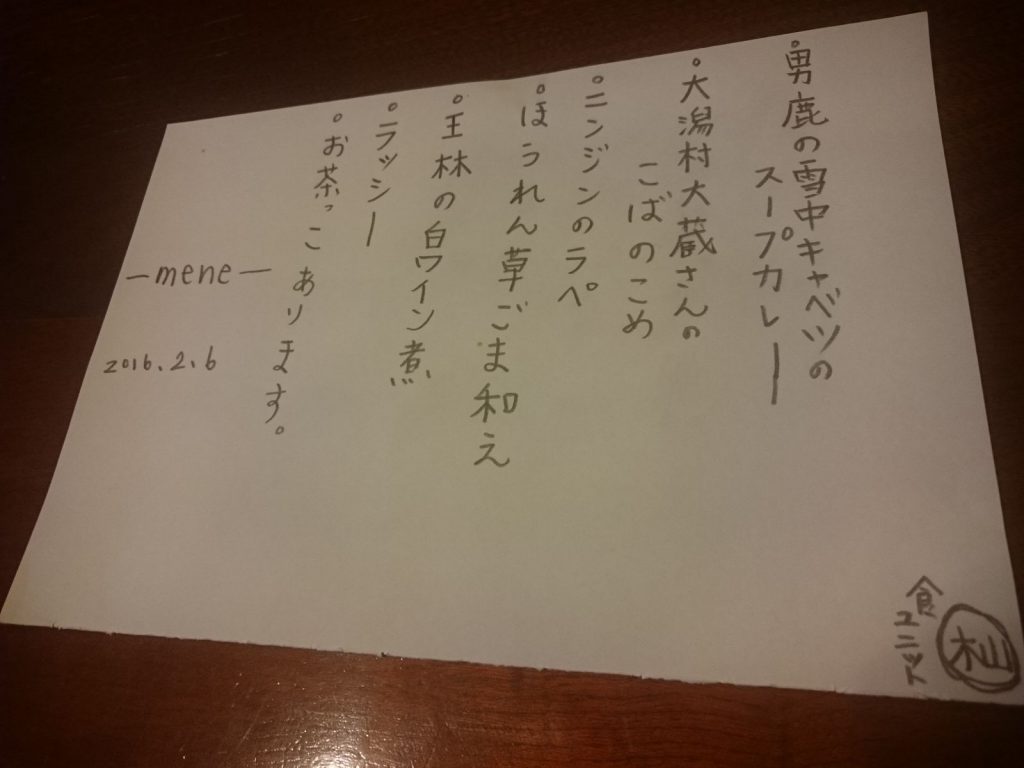 。男鹿の雪中キャベツの
スープカレー
。大潟村大蔵さんの
こばのこめ
。ニンジンのラペ
。ほうれん草ごま和え
。王林の白ワイン煮
。ニラッシー
。お茶っこあります。
—mene—
2016.2.6
食
ユニット
杣